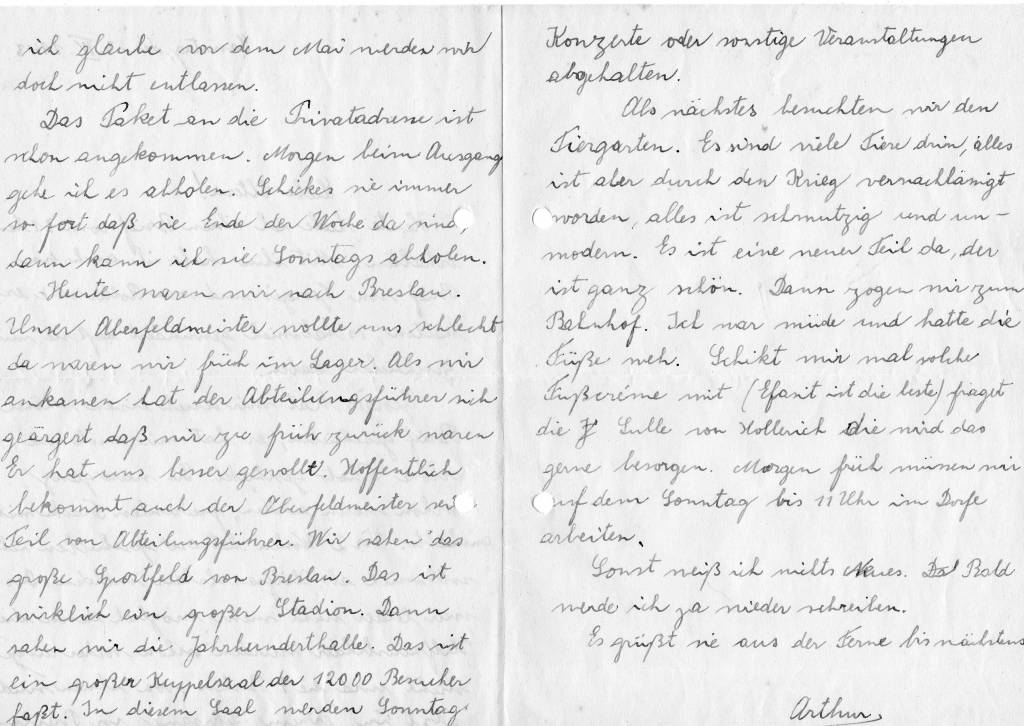 ich glaube vor dem Mai werden wir
doch nicht entlassen.
Das Paket an die Privatadresse ist
schon angekommen. Morgen beim Ausgang
gehe ich es abholen. Schickes sie immer
so fort daß sie Ende der Woche da sind,
dann kann ich sie Sonntags abholen.
Heute waren wir nach Breslau.
Unser Oberfeldmeister wollte uns schlecht
da waren wir früh im Lager. Als wir
ankamen hat der Abteilungsführer sich
geärgert daß wir zu früh zurück waren
Er hat uns besser gewollt. Hoffentlich
bekommt auch der Oberfeldmeister sei
Teil vom Abteilungsführer. Wir sahen das
große Sportfeld von Breslau. Das ist
wirklich ein großer Stadion. Dann
sahen wir die Jahrhunderthalle. Das ist
ein großer Kuppelsaal der 12000 Besucher
faßt. In diesem Saal werden Sonntag
Konzerte oder sonstige Veranstaltungen
abgehalten.
Als nächstes besuchten wir den
Tiergarten. Es sind viele Tiere drin, alles
ist aber durch den Krieg vernachläßigt
worden, alles ist schmutzig und un-
modern. Es ist eine neuer Teil da, der
ist ganz schön. Dann zogen wir zum
Bahnhof. Ich war müde und hatte die
Füße weh. Schikt mir mal solche
Fußcréme mit (Efasit ist die beste) fraget
die J Sulle von Hollerich die wird das
gerne besorgen. Morgen früh müssen wir
auf dem Sonntag bis 11 Uhr im Dorfe
arbeiten.
Sonst weiß ich nichts Neues. Bald
werde ich ja wieder schreiben.
Es grüßt sie aus der Ferne bis nächstens
Arthur.